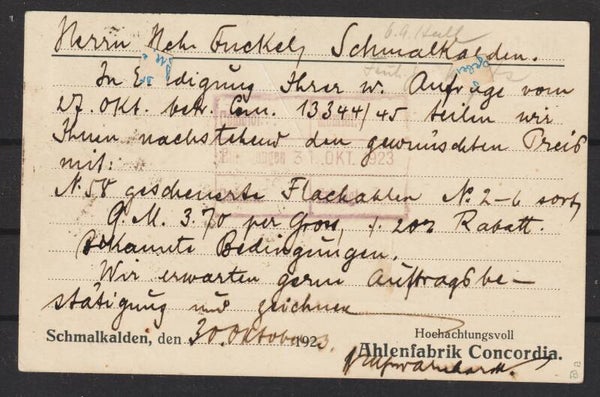 Herrn Schmalkalden.
In Erledigung Ihrer w. Anfrage vom
27. Okt. betr. Com. 13344/45 teilen wir
Ihnen nachstehend den gewünschten Preis
mit:
No. 58 gescheuerte Flachahlen No. 2-6 sort.
G.M. 3.70 per Gross, ./. 20% Rabatt.
Bekannte Bedingungen.
Wir erwarten gerne Auftragsbe-
stätigung und zeichnen
31. OKT. 1923
Schmalkalden, den 30. Oktober 1923.
Hochachtungsvoll
Ahlenfabrik Concordia.